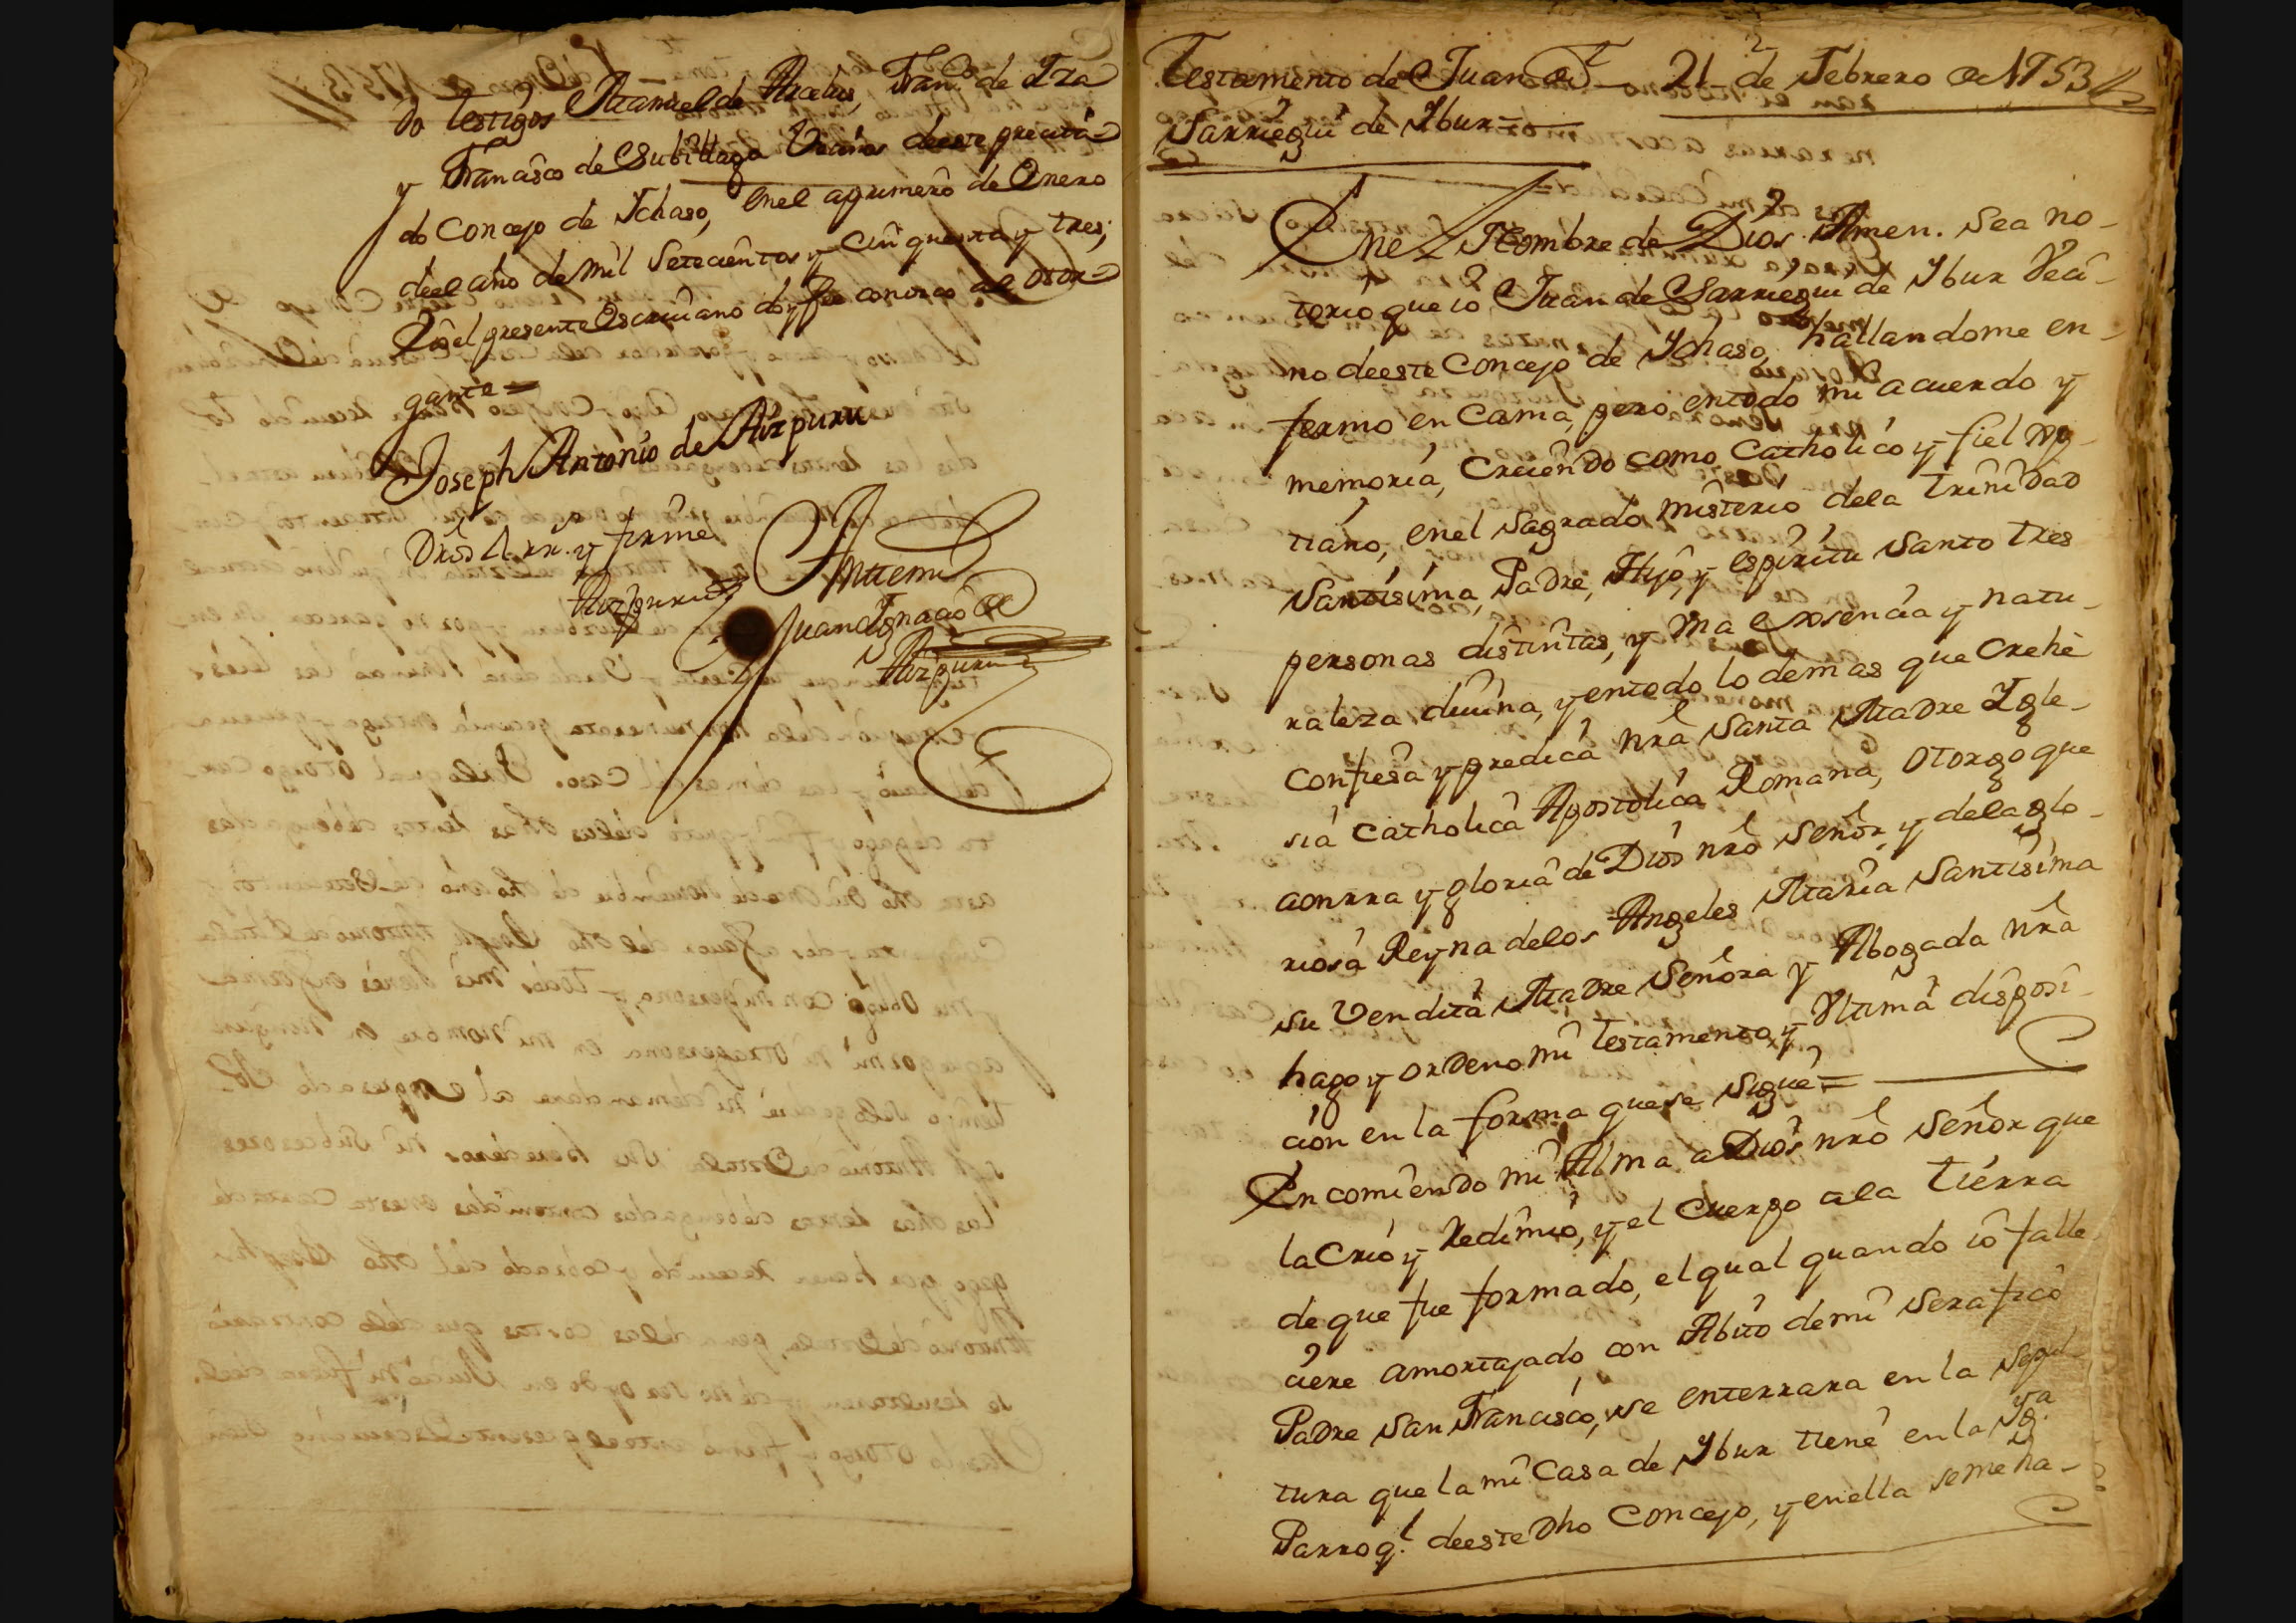 do testigos Manuel de Arcelus, Franco de Yza
y Francisco de Subillaga Vecinos deeste precita-
do Concejo de Ichaso, enel a primero de Enero
deel año de mil setecientos y cinquenta y tres;
Ê yo el presente Escriuano doy fee conozco al otor-
gante =
Joseph Antonio de Aizpuru
Dros A rr. y firme
Aizpuru
Antemi
Juan Ignacio de
Aizpuru
Testamento de Juan de 21 de Febrero de 1753
Sarriegui de Ibur =
Enel Nombre de Dios Amen. Sea no-
torio que io Juan de Sarriegui de Ibur Veci-
no deeste Concejo de Ichaso, hallandome en-
fermo en Cama, pero entodo mi acuerdo y
memoria, creiendo como Catholico y fiel xp-
tiano, enel sagrado misterio dela trinidad
Santisima, Padre, Hijo, y espiritu santo tres
personas distintas, y vna exsencia y natu-
raleza diuina, y entodo lo demas que Crehè
confiesa y predica nrâ Santa Madre Igle-
sia Catholica Apostolica Romana, otorgo que
aonrra y gloria de Dios nrô señor, y dela glo-
riosa Reyna delos Angeles Maria Santisima
su Vendita Madre Señora y Abogada nrâ
hago y ordeno mi testamento, y Vltima disposi-
cion en la forma que se sigue =
Encomiendo mi Alma a Dios nrô señor que
la Crió y Redimió, y el cuerpo ala tierra
de que fue formado, el qual quando io falle
ciere amortajado con Abito demi serafico
Padre San Francisco, se enterrara en la sepul-
tura que la mi Casa de Ibur tiene en la yga
Parroql. deeste Dho Concejo, y enella se me ha-